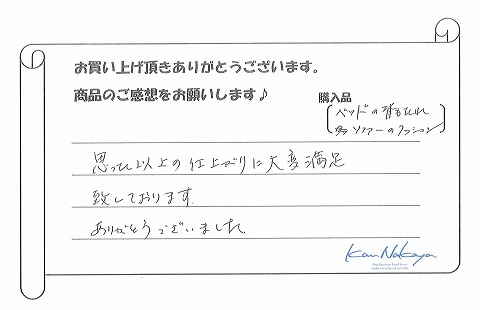 お買い上げ頂きありがとうございます。
商品のご感想をお願いします♪
購入品
ベッドの背もたれ
ソファーのクッション
思った以上の仕上がりに大変満足
致しております
ありがとうございました
Kan Nakaya